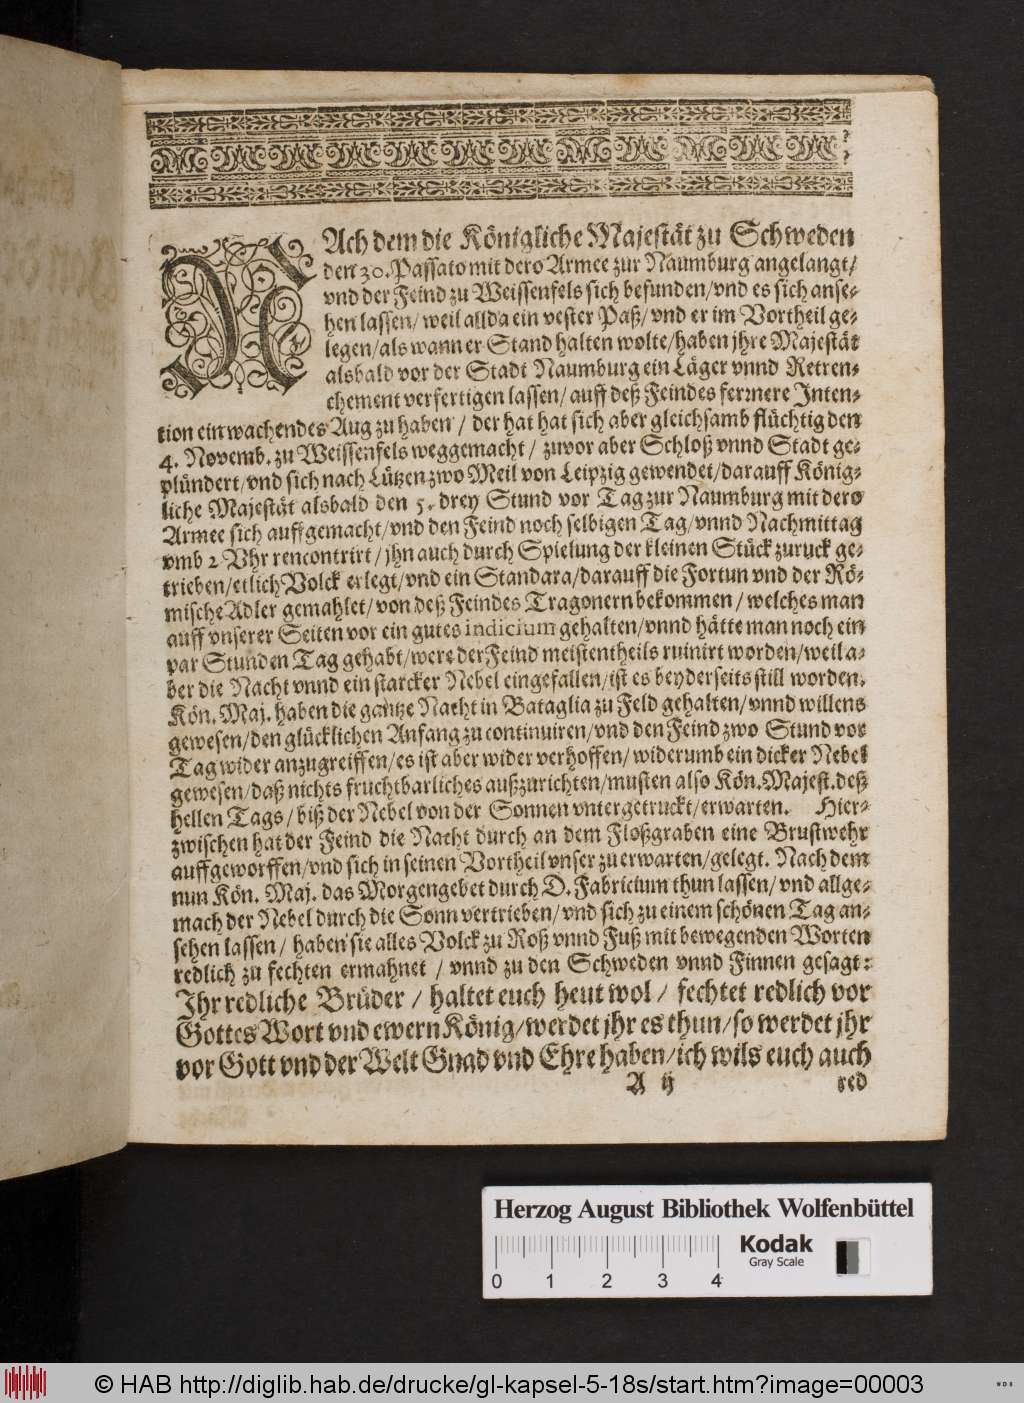 NAch dem die Königliche Majestät zu Schweden
den 30. Passato mit dero Armee zur Naumburg angelangt/
vnd der Feind zu Weissenfels sich befunden/vnd es sich anse-
hen lassen/ weil allda ein vester Paß/ vnd er im Vortheil ge-
legen/als wann er Stand halten wolte/haben jhre Majestät
alsbald vor der Stadt Naumburg ein Läger vnnd Retren-
chement verfertigen lassen/ auff deß Feindes fermere Inten-
tion ein wachendes Aug zu haben / der hat hat sich aber gleichsamb flüchtig den
4. Novemb. zu Weissenfels weggemacht / zuvor aber Schloß vnnd Stadt ge-
plündert/vnd sich nach Lützen zwo Meil von Leipzig gewendet/darauff König-
liche Majestät alsbald den 5. drey Stund vor Tag zur Naumburg mit dero
Armee sich auffgemacht/vnd den Feind noch selbigen Tag/vnnd Nachmittag
vmb 2 Vhr rencontrirt/ jhn auch durch Spielung der kleinen Stück zuruck ge-
trieben/etlich Volck erlegt/vnd ein Standara/darauff die Fortun vnd der Rö-
mische Adler gemahlet/ von deß Feindes Tragonern bekommen / welches man
auff vnserer Seiten vor ein gutes indicium gehalten/vnnd hätte man noch ein
par Stunden Tag gehabt/were der Feind meistentheils ruinirt worden/weil a-
ber die Nacht vnnd ein starcker Nebel eingefallen/ist es beyderseits still worden.
Kön. Maj. haben die gantze Nacht in Bataglia zu Feld gehalten/vnnd willens
gewesen/den glücklichen Anfang zu continuiren/vnd den Feind zwo Stund vor
Tag wider anzugreiffen/es ist aber wider verhoffen/widerumb ein dicker Nebel
gewesen/daß nichts fruchtbarliches außzurichten/musten also Kön. Majest. deß
hellen Tags/ biß der Nebel von der Sonnen vntergetruckt/erwarten. Hier-
zwischen hat der Feind die Nacht durch an dem Floßgraben eine Brustwehr
auffgeworffen/vnd sich in seinen Vortheil vnser zu erwarten/gelegt. Nach dem
nun Kön. Maj. das Morgengebet durch D. Fabricium thun lassen/ vnd allge-
mach der Nebel durch die Sonn vertrieben/vnd sich zu einem schönen Tag an-
sehen lassen/ haben sie alles Volck zu Roß vnnd Fuß mit bewegenden Worten
redlich zu fechten ermahnet / vnnd zu den Schweden vnnd Finnen gesagt:
Jhr redliche Brüder / haltet euch heut wol / fechtet redlich vor
Gottes Wort vnd ewern König/werdet jhr es thun/so werdet jhr
vor Gott vnd der Welt Gnad vnd Ehre haben/ich wils euch auch
A ij red
Herzog August Bibliothek Wolfenbüttel
0 1 2 3 4
Kodak
Gray Scale
© HAB http://diglib.hab.de/drucke/gl-kapsel-5-18s/start.htm?image=00003